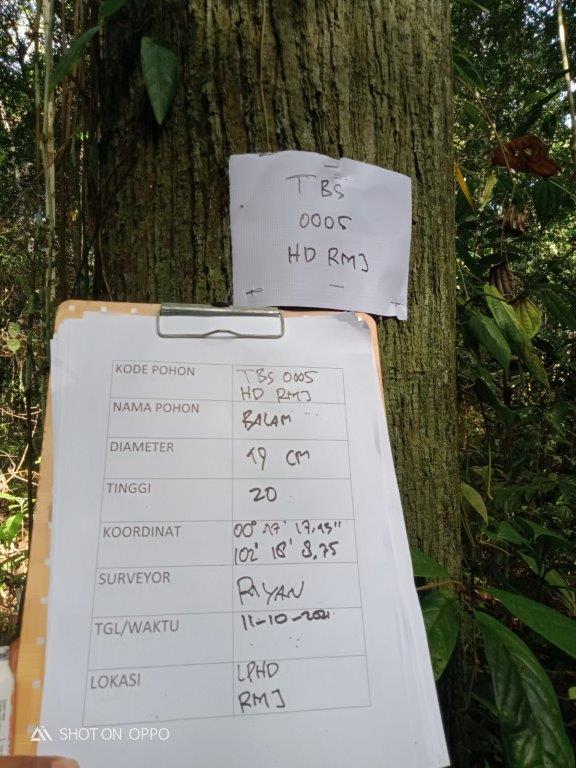 TBS
0005
HD RMJ
KODE POHON TBS 0005
HD RMJ
NAMA POHON BALAM
DIAMETER 49 CM
TINGGI 20
KOORDINAT 00° 47' 17.43"
102' 18' 8,75
SURVEYOR RIYAN
TGL/WAKTU 11-10-2021
LOKASI LPHD
RMJ
SHOT ON OPPO